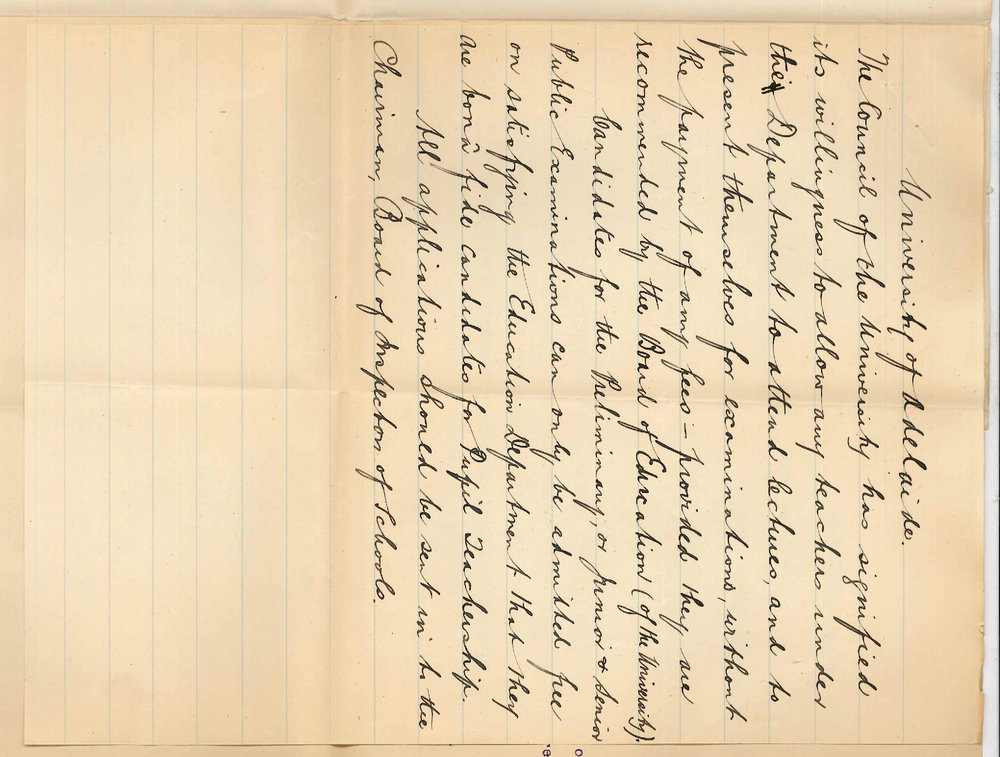 University of Adelaide.
The Council of the University has signified
its willingness to allow any teachers under
the Department to attend lectures, and to
present themselves for examinations, without
the payment of any fees – provided they are
recommended by the Board of Education (of the University).
Candidates for the Preliminary, or Junior & Senior
Public Examinations can only be admitted free
on satisfying the Education Department that they
are bonâ fide candidates for Pupil Teachership.
All applications should be sent in to the
Chairman, Board of Inspectors of Schools.